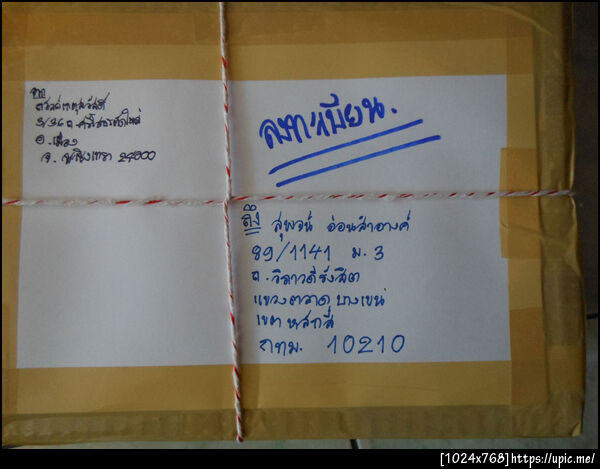 จาก
อ. เมือง
จ. ฉะเชิงเทรา 24000
ลงทะเบียน.
ถึง สุพจน์ อ่อนสำอางค์
89/1141 ม. 3
ถ. วิภาวดีรังสิต
แขวงตลาดบางเขน
เขต หลักสี่
กทม. 10210
[1024x768]https://upic.me/